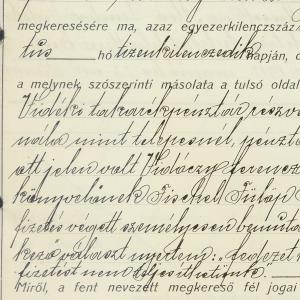 megkeresésére ma, azaz egyezerkilenczszáz
tus hó tizenkilenczedik napján, d
a melynek, szószerinti másolata a tulsó oldal
Vidéki takarékpénztár részvé
nála mint telepesnél, pénztá
ott jelen volt Vidóczy Ferencz
könyvelőnek Fischel Fülöp
fizetés végett személyesen bemuta
kező választ nyertem: „fedezet h
fizetést nem teljesíthetünk.
Miről, a fent nevezett megkereső fél jogai